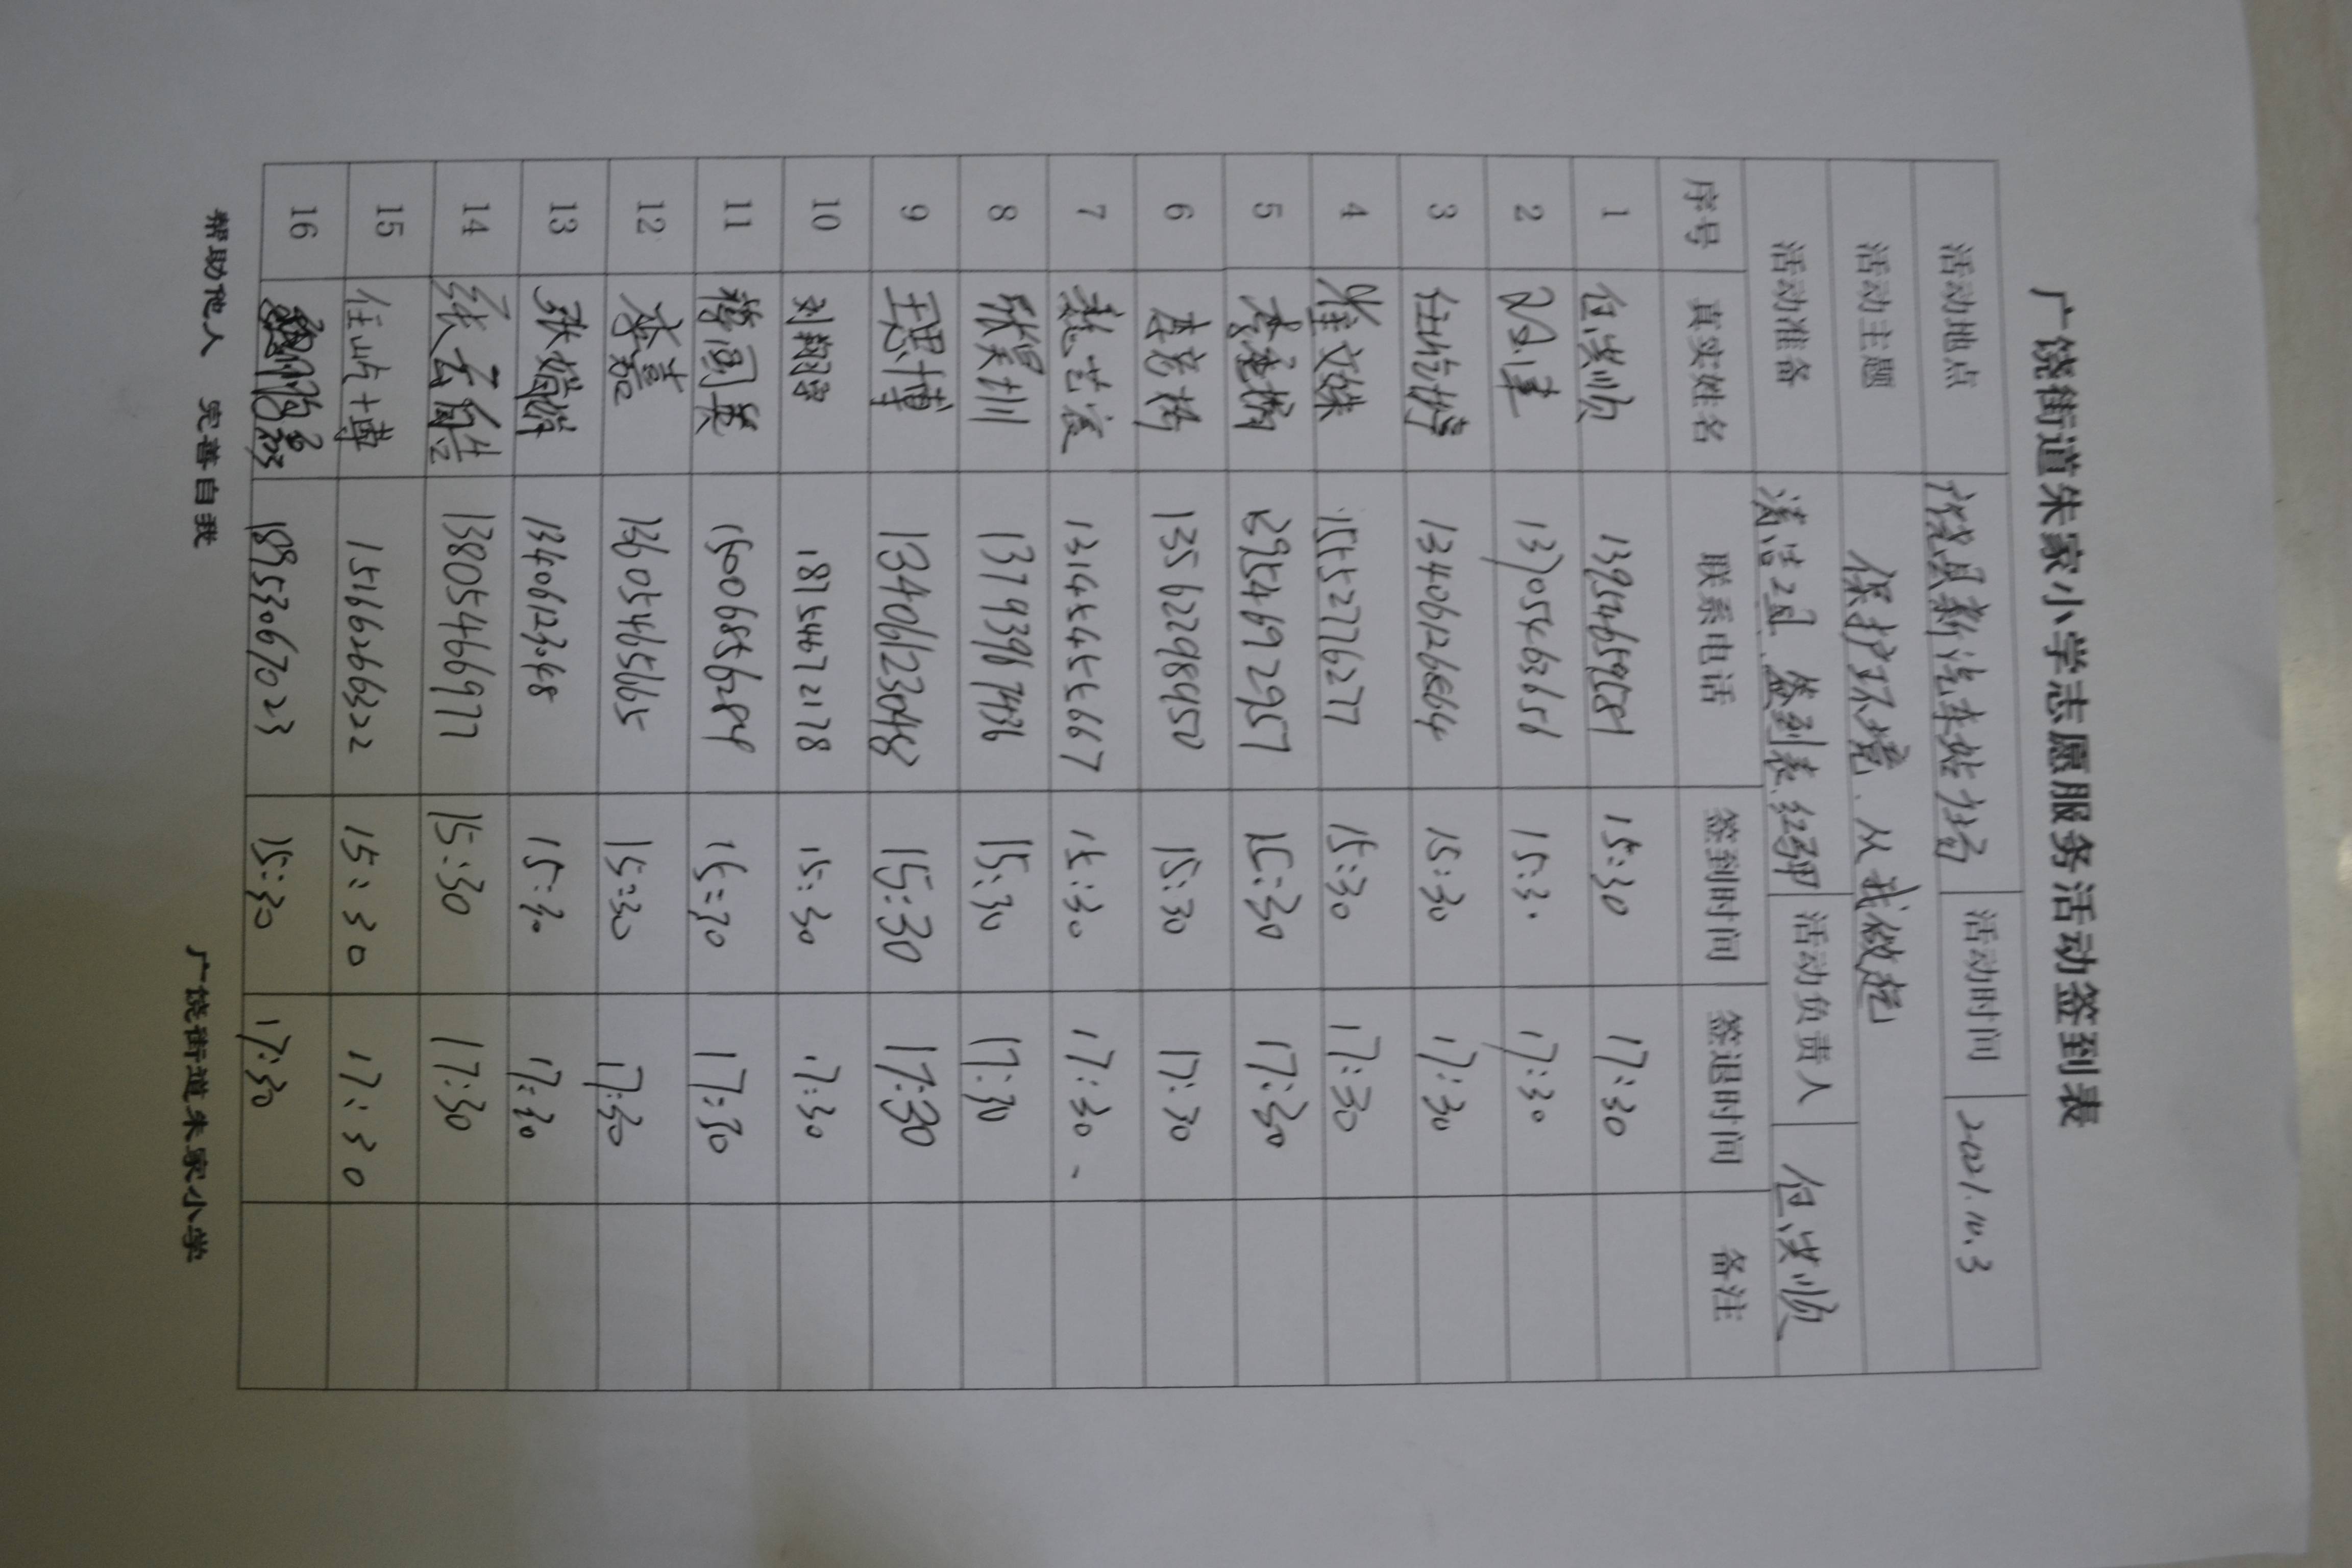 广饶街道朱家小学志愿服务活动签到表
活动地点 饶县新汽车站广场 活动时间 2021.10.3
活动主题 保护环境、从我做起
活动准备 清洁工具、签到表、红马甲 活动负责人 任洪顺
序号 真实姓名 联系电话 签到时间 签退时间 备注
1 任洪顺 13954659281 15:30 17:30
2 13705463656 15:30 17:30
3 13406126564 15:30 17:30
4 崔文姝 15552776277 15:30 17:30
5 13954692957 15:30 17:30
6 13562298950 15:30 17:30
7 赵艺凌 13145455667 15:30 17:30
8 张昊川 13793967436 15:30 17:30
9 王思博 13406123048 15:30 17:30
10 刘翔宇 18754672178 15:30 17:30
11 15006856284 15:30 17:30
12 李嘉 13605465665 15:30 17:30
13 张娟娟 13406123048 15:30 17:30
14 13805466977 15:30 17:30
15 任屿博 15166266322 15:30 17:30
16 18953067023 15:30 17:30
帮助他人 完善自我 广饶街道朱家小学